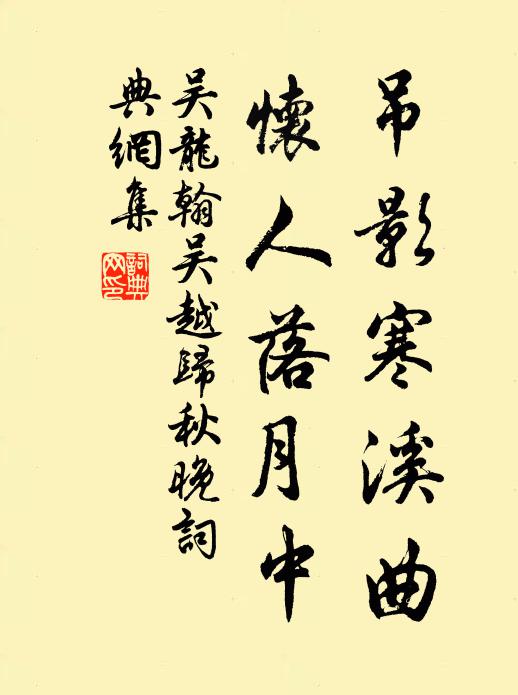 吊影寒溪曲
懷人落月中
吳龍翰吳越歸秋晚詞
典網集
詞典网印